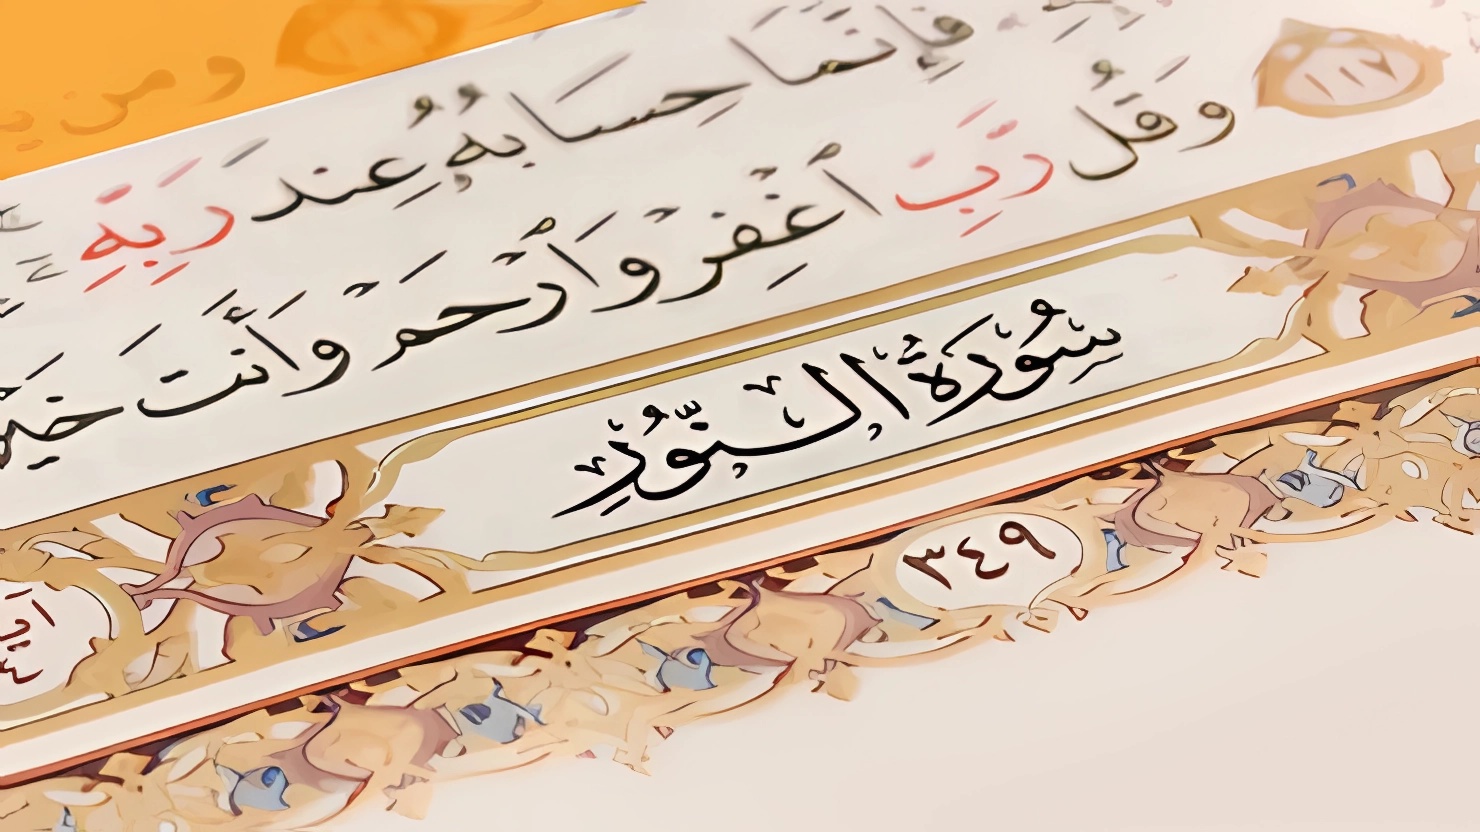 ومن
فَإِنَّمَا حِسَابُهُۥ عِندَ رَبِّهِۦ
١١٧ وَقُل رَّبِّ ٱغْفِرْ وَٱرْحَمْ وَأَنتَ
سُورَةُ النُّورِ
٣٤٩